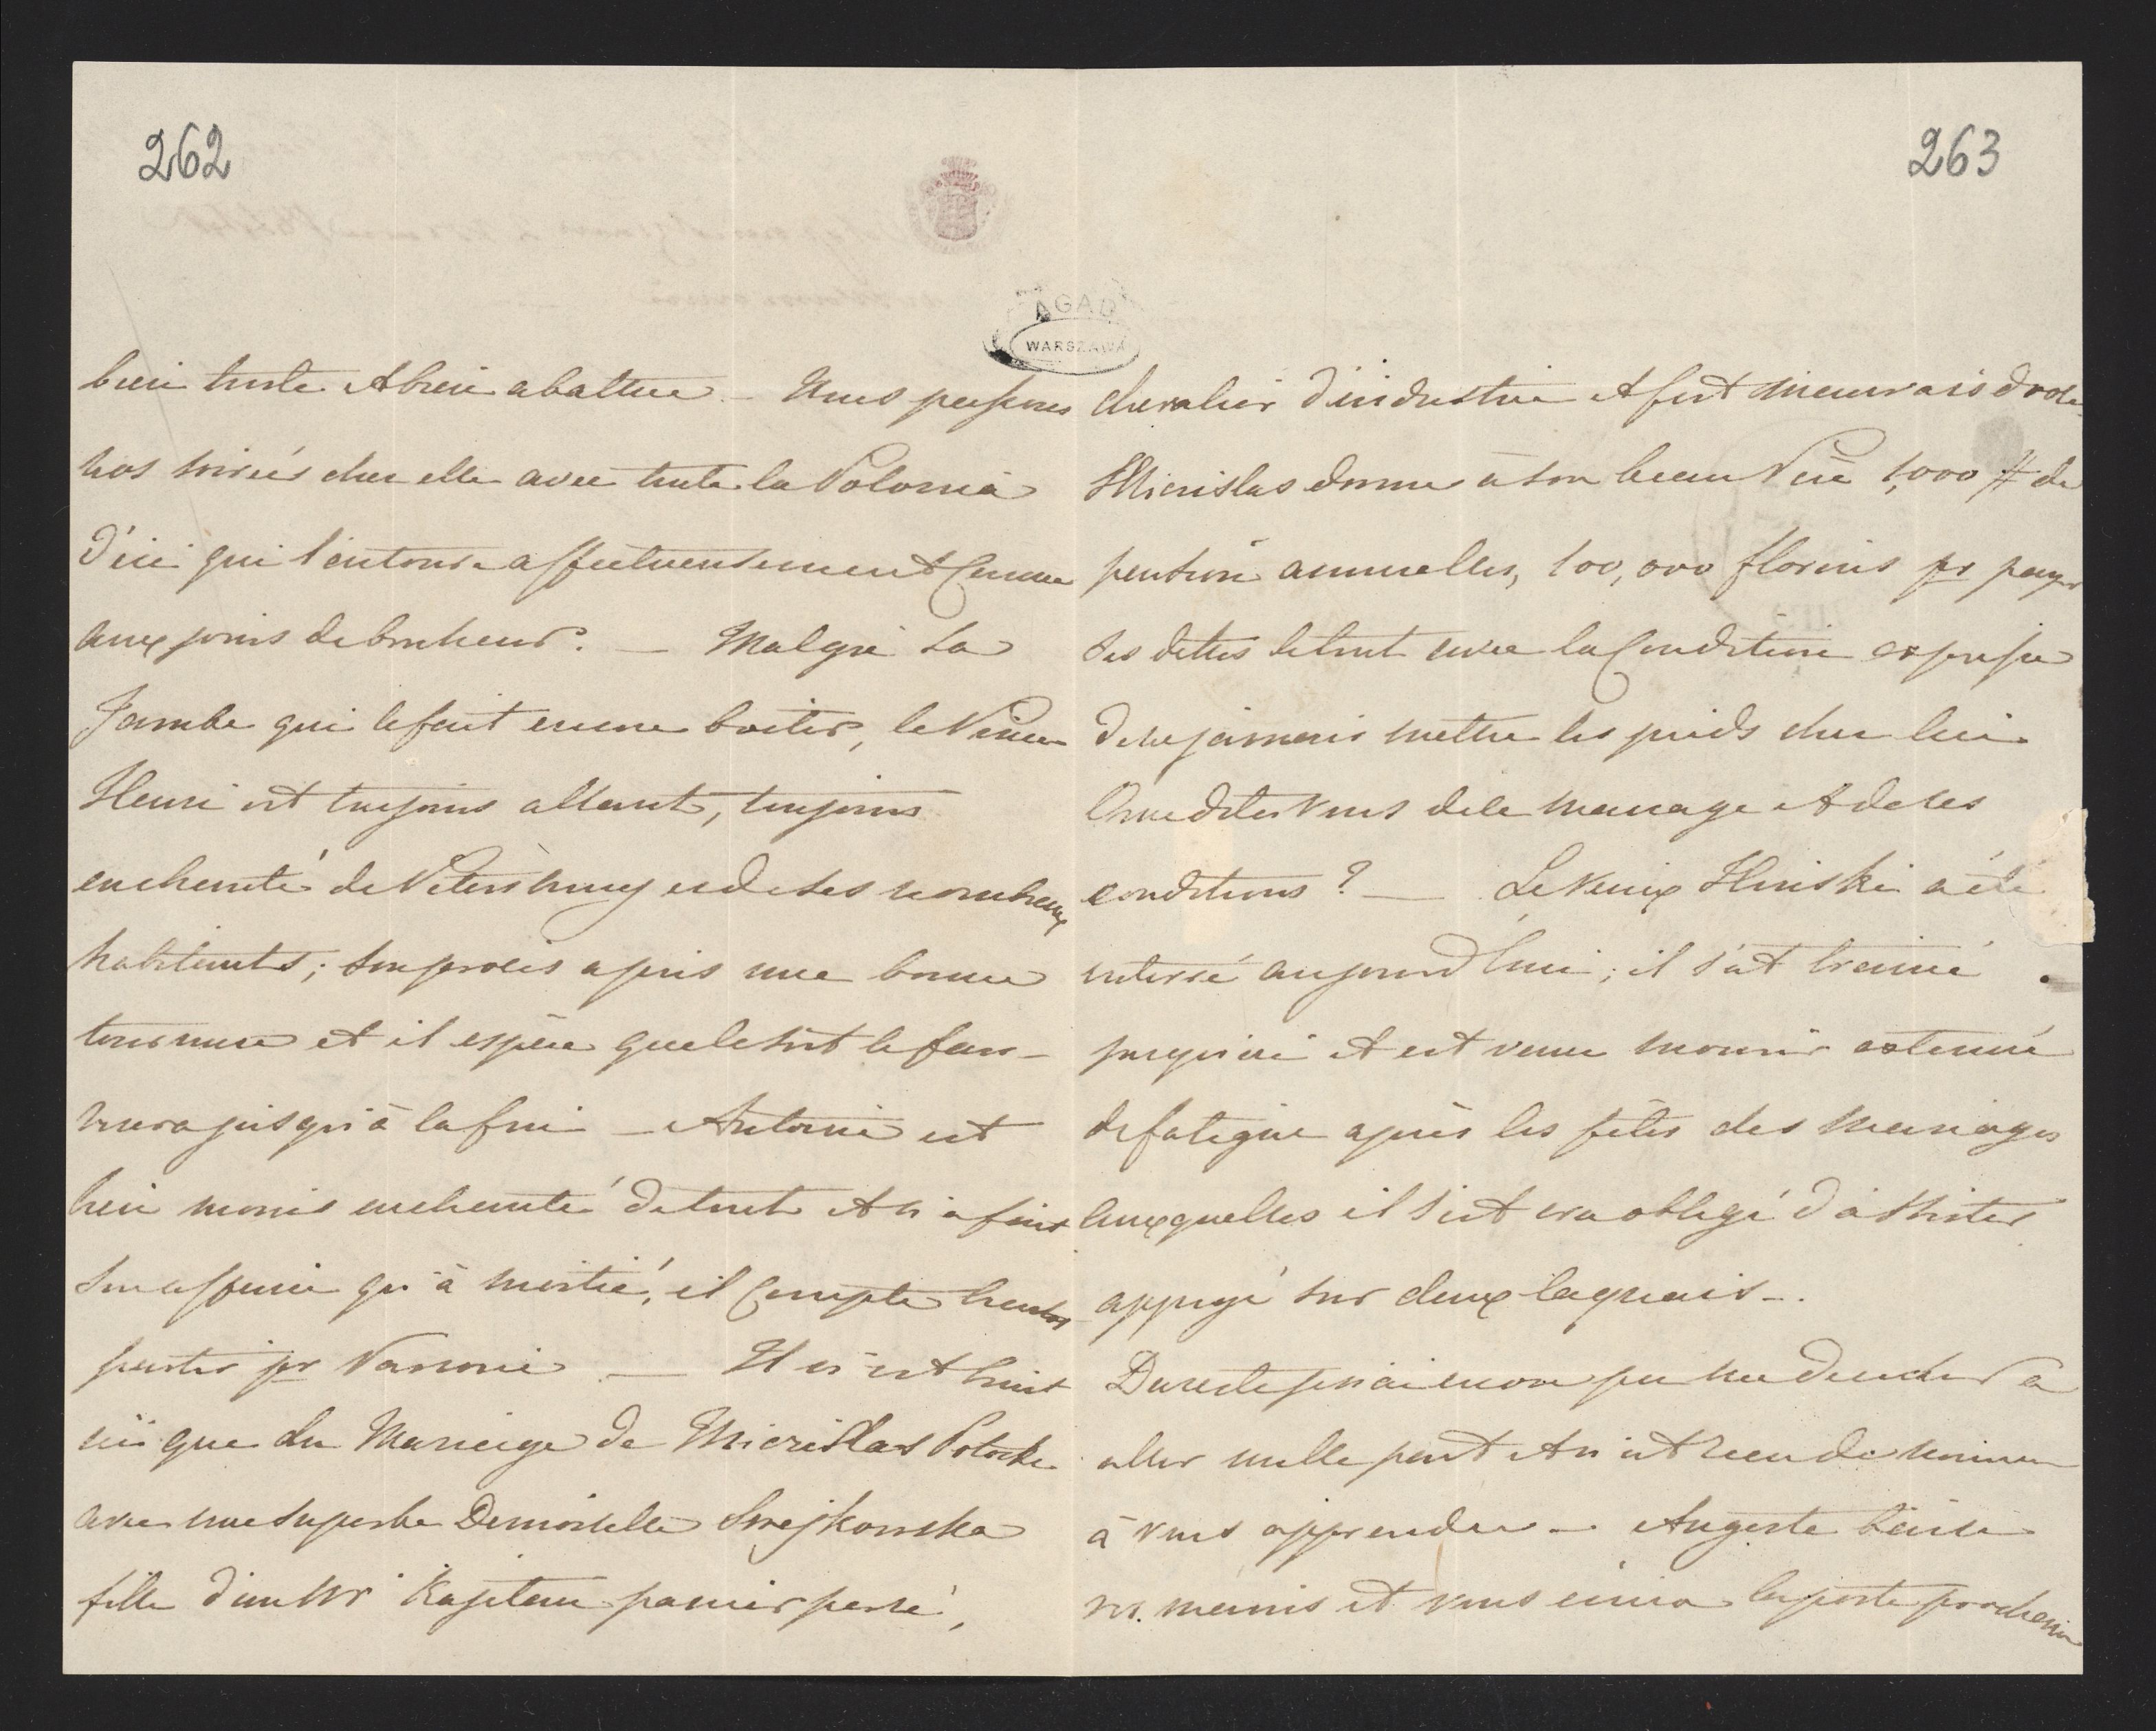 262
bien triste et bien abattue – Nous passons
nos soirées chez elle avec toute la Polonia
d'ici qui l'entoure affectueusement comme
aux jours de bonheur. — Malgré sa
Jambe qui le fait encore boiter, le Prince
Henri est toujours allant, toujours
enchanté de Petersbourg et de ses nombreux
habitants; son procès a pris une bonne
tournure et il espère que le sort le favo-
risera jusqu'à la fin – Antoine est
bien moins enchanté de tout et n'a fait
son affaire qu'à moitié, il compte bientôt
partir pr Varsovie — Il n'est bruit
ici que du Mariage de Miecislas Potocki
avec une superbe Demoiselle Swejkowska
fille d'un Mr Kapitan panier percé,
263
AGAD
WARSZAWA
chevalier d'industrie et fort mauvais drole
Miecislas donne à son beau Père 1,000 # de
pension annuelles, 100,000 florins pr payer
ses dettes le tout avec la condition expresse
de ne jamais mettre les pieds chez lui
Que dites vous de ce mariage et de ses
conditions? — Le vieux Ilinski a été
enterré aujourd'hui; il s'est trainé
jusqu'ici et est venu mourir extenué
de fatigue après les fêtes des mariages
auxquelles il s'est cru obligé d'assister
appuyé sur deux laquais –.
Du reste je n'ai encore pu me decider à
aller nulle part et n'ai rien de nouveau
à vous apprendre – Auguste baise
vos mains et vous écrira la poste prochaine